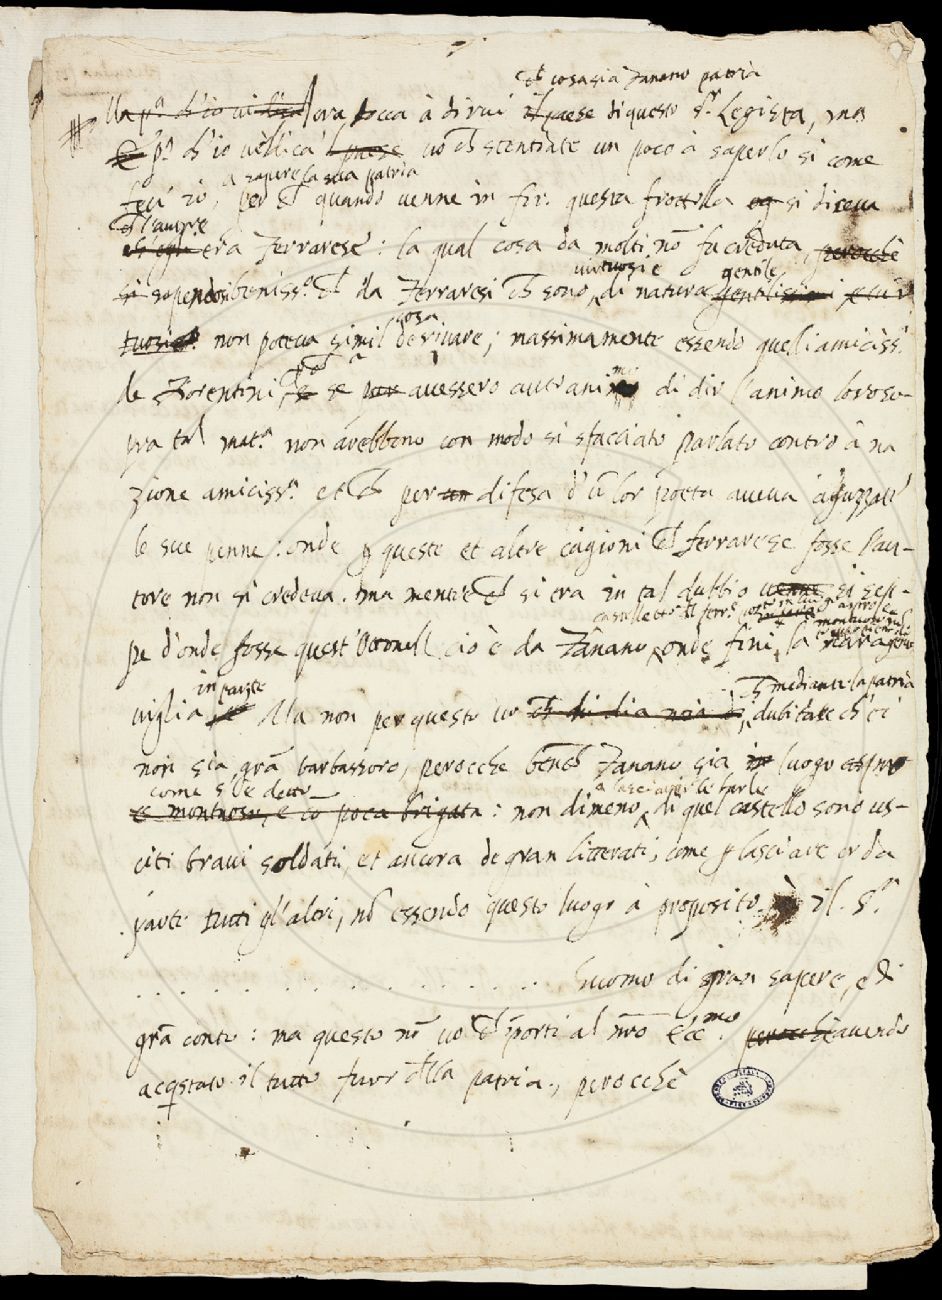 che cosa sia Zanano patria
ora tocca à dirui il paese di questo S.r Legista, ma
p.a ch'io uèl dica il paese uo che stentiate un poco à saperlo si come
à sapere la sua patria
feci io, però che quando uenne in fir. questa frottola si diceua
che l'autore
era Ferrarese: la qual cosa da molti nō fu creduta, perocchè
uirtuosi e gentile
sapendosi beniss.o che da Ferraresi che sono, di natura gentilissimi e uir
cosa
tuosi non poteua simil deriuare; massimamente essendo queli amiciss.i
de Fiorentini, che se auessero autrani di dir l'animo loro so-
pra tal mat.a non arebbono con modo si sfacciato parlato contro à na
zione amiciss.a et che per un difesa d'ū lor poeta aueua aguzzate
le sue penne: onde p queste et altre cagioni che ferrarese fosse l'au-
tore non si credeua. ma mentre che si era in tal dubbio uenne si sep-
pe d'onde fosse quest' ciò è da Zanano, onde finì la mara
in parte che mediante la patria
uiglia. Ma non per questo uo dubitate ch'ei
non sia grā barbassoro, perocche benchè Zanano sia in luogo aspro
come s'è detto à lasciar le burle
e montuoso, e co poca brigata: non dimeno, di quel castello sono us-
citi braui soldati, et ancora de gran litterati, come p lasciare or da
parte tutti gl'altri, nō essendo questo luogo à proposito, è il S.r
. . . . . . . . . . . . . . huomo di gran sapere, e di
grā conto: ma questo nō uo che īporti al nr̄o Ecc.mo perocchè auendo
acqstato il tutto fuor della patria, perocchè